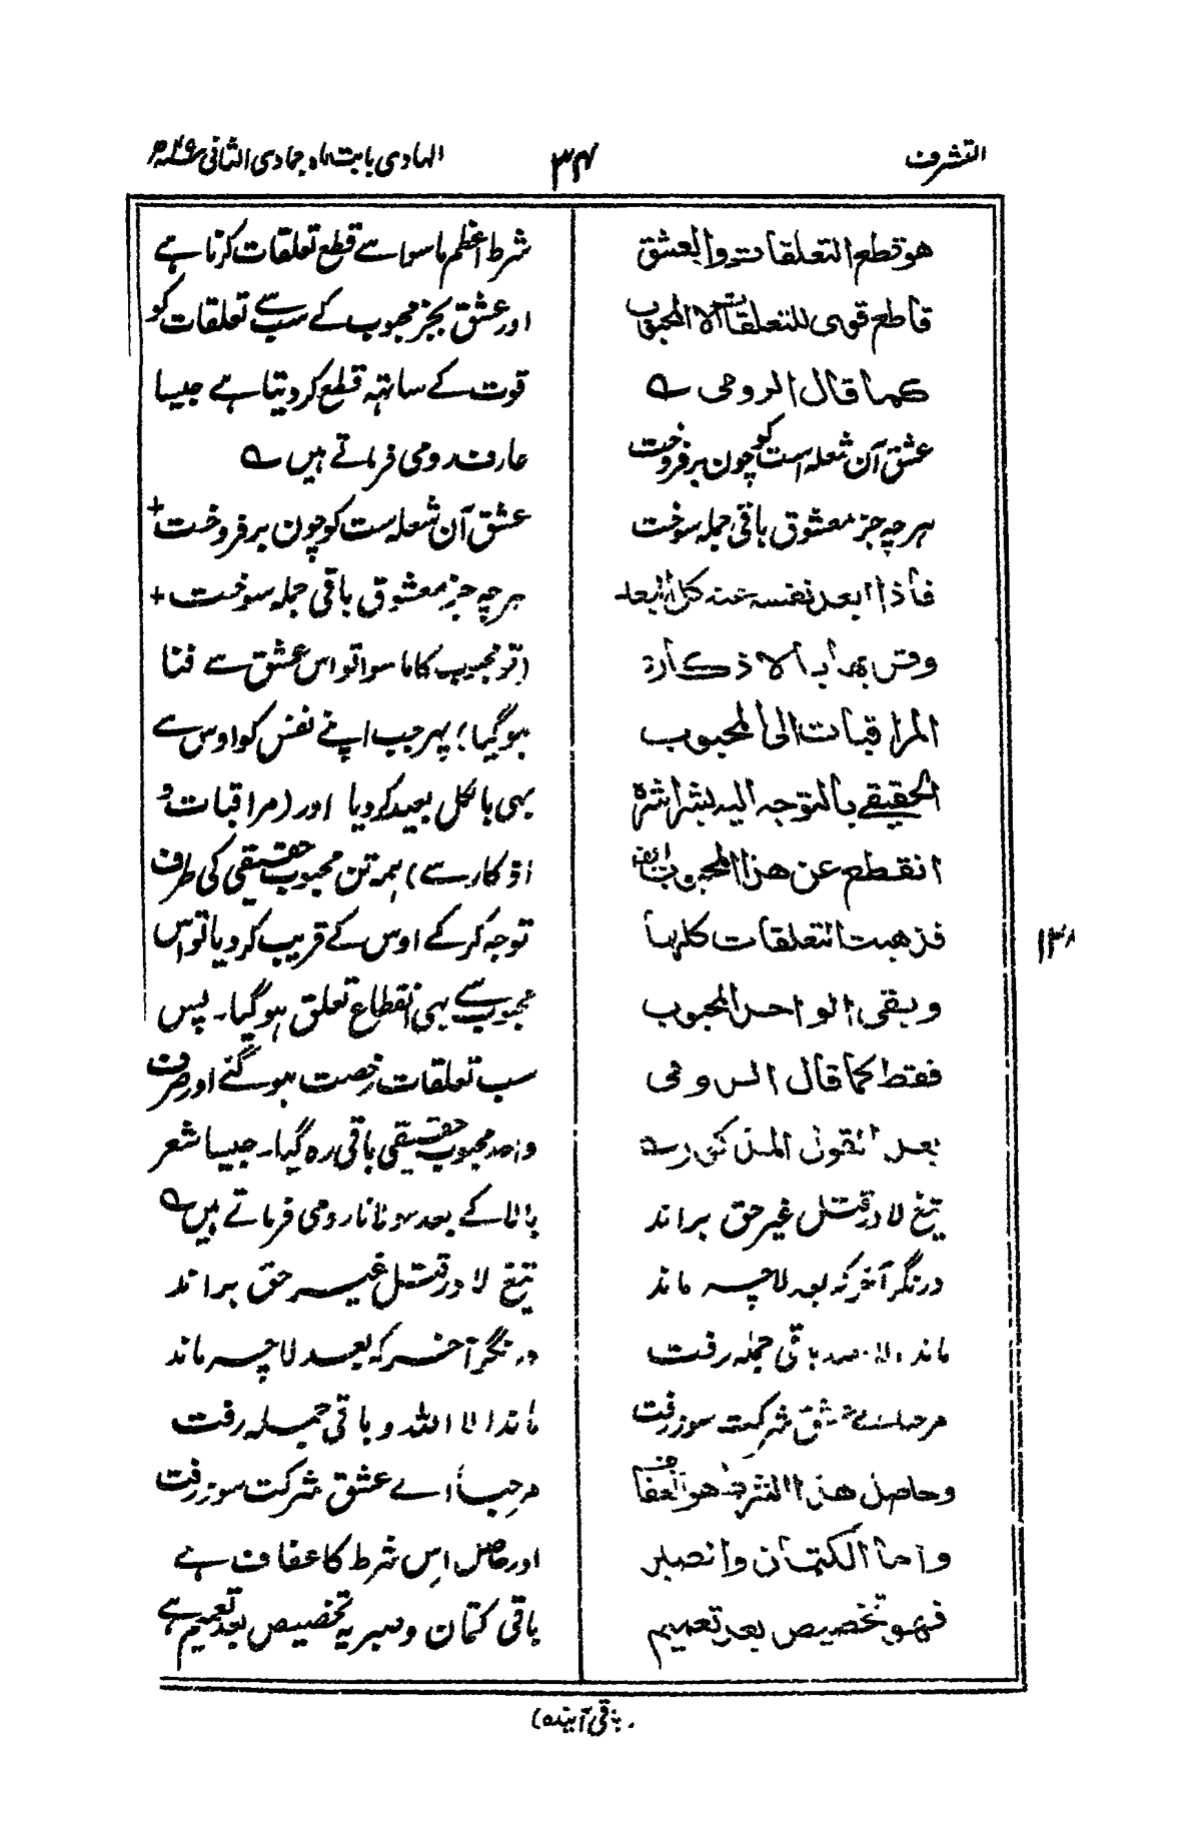 التشرف
۳۴
الہادی بابت ماہ جمادی الثانی
هو قطع التعلقات والعشق
قاطع قوی للتعلقات الا المحبوب
كما قال الرومی ے
عشق آن شعلہ است کو چون برفروخت
ہرچہ جز معشوق باقی جملہ سوخت
فاذا ابعد نفسه عنه كل البعد
وقربها بالاذكار و
المراقبات الی المحبوب
الحقیقے بالتوجه الیه بشراشره
انقطع عن هذا المحبوب ایضا
فذهبت التعلقات كلها
وبقی الواحد المحبوب
فقط كما قال الرومی
بعد القول المذكور ے
تیغ لا در قتل غیر حق براند
درنگر آخر کہ بعد لا چہ ماند
ماند الا اللہ باقی جملہ رفت
مرحبا اے عشق شرکت سوز رفت
وحاصل هذا الشرط هو العفاف
واما الكتمان والصبر
فهو تخصیص بعد تعمیم
شرط اعظم ماسوا سے قطع تعلقات کرنا ہے
اور عشق بجز محبوب کے سب سے تعلقات کو
قوت کے ساتہہ قطع کردیتا ہے جیسا
عارف رومی فرماتے ہیں ے
عشق آن شعلہ ست کو چون برفروخت +
ہرچہ جز معشوق باقی جملہ سوخت +
(تو محبوب کا ماسوا تو اس عشق سے فنا
ہوگیا؛ پہر جب اپنے نفس کو اوس سے
بہی بالکل بعید کردیا اور (مراقبات و
اذکار سے) ہمہ تن محبوب حقیقی کی طرف
توجہ کرکے اوس کے قریب کردیا تو اس
محبوب سے بہی انقطاع تعلق ہوگیا۔ پس
سب تعلقات رخصت ہوگئے اور صرف
واحد محبوب حقیقی باقی رہ گیا۔ جیسا شعر
بالا کے بعد مولانا رومی فرماتے ہیں ے
تیغ لا در قتل غیر حق براند
درنگر آخر کہ بعد لا چہ ماند
ماند الا اللہ و باقی جملہ رفت
مرحبا اے عشق شرکت سوز رفت
اور حاصل اس شرط کا عفاف ہے
باقی کتمان و صبر یہ تخصیص بعد تعمیم ہے
۱۳۸
(باقی آیندہ)